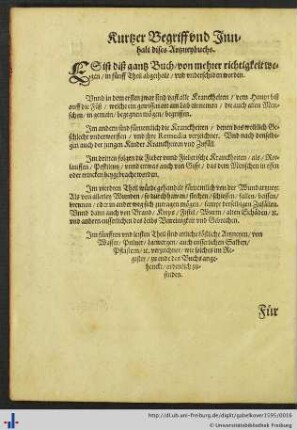 Kurtzer Begriff vnd Inn-
halt dises Artzneybuchs.
ES ist diß gantz Buch / von mehrer richtigkeit we-
gen / in fünff Theil abgetheilt / vnd vnderscheiden worden.
Vnnd in dem ersten zwar sind vast alle Kranckheiten / vom Haupt biß
auff die Füß / welche ein gewissen ort am Leib innemen / die auch allen Men-
schen / in gemein / begegnen mögen / begriffen.
Im andern sind fürnemlich die Kranckheiten / denen das weiblich Ge-
schlecht vnderworffen / vnd ihre Remedia verzeichnet. Vnd nach denselbi-
gen auch der jungen Kinder Kranckheiten vnd Zufäll.
Im dritten folgen die Fieber vnnd Fieberische Kranckheiten / als /
/ Pestilentz / vnnd etwas auch von Gifft / das dem Menschen in essen
oder trincken beygebracht worden.
Im vierdten Theil würdt gehandelt fürnemlich von der Wundartzney:
Als von allerley Wunden / so durch hawen / stechen / schiessen / fallen / beissen /
brennen / oder in ander weg sich zutragen mögen / sampt derselbigen Zufällen.
Vnnd dann auch von Brand / Krebs / Fistel / Würm / alten Schäden / rc.
vnd andern eusserlichen des Leibs Vnreinigkeit vnd Gebrechen.
Im fünfften vnd letsten Theil sind etliche köstliche Artzneyen / von
Wasser / Puluer / Latwergen / auch eusserlichen Salben /
Pflastern / rc. verzeichnet / wie solches im Re-
gister / zu ende des Buchs ange-
henckt / ordenlich zu-
finden.
Für
http://dl.ub.uni-freiburg.de/diglit/gabelkover1595/0016
© Universitätsbibliothek Freiburg